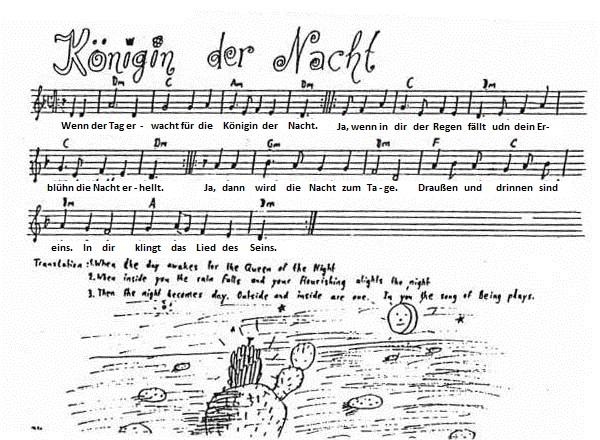 Königin der Nacht
Dm C Am Dm C Dm
Wenn der Tag er - wacht für die Königin der Nacht. Ja, wenn in dir der Regen fällt udn dein Er-
C Dm Gm Dm F C
blühn die Nacht er - hellt. Ja, dann wird die Nacht zum Ta - ge. Draußen und drinnen sind
Dm A Dm
eins. In dir klingt das Lied des Seins.
Translation: 1. When the day awakes for the Queen of the Night
2. When inside you the rain falls and your flourishing alights the night
3. Then the night becomes day. Outside and inside are one. In you the song of Being plays.